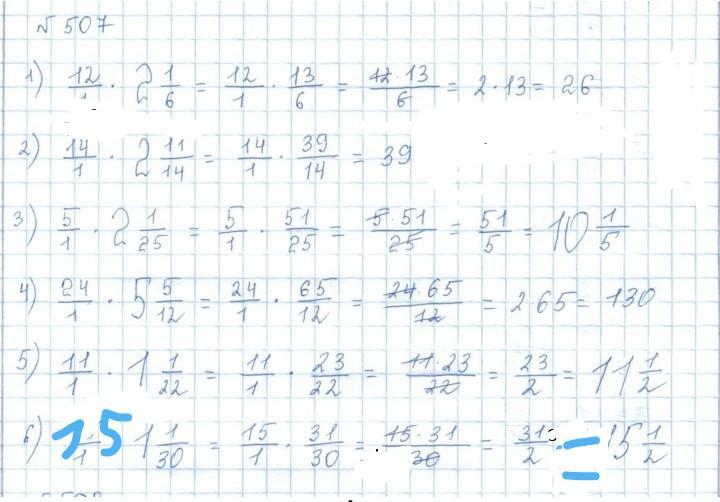 № 507
1) 12/1 · 2 1/6 = 12/1 · 13/6 = 12·13/6 = 2·13 = 26
2) 14/1 · 2 11/14 = 14/1 · 39/14 = 39
3) 5/1 · 2 1/25 = 5/1 · 51/25 = 5·51/25 = 51/5 = 10 1/5
4) 24/1 · 5 5/12 = 24/1 · 65/12 = 24·65/12 = 2·65 = 130
5) 11/1 · 1 1/22 = 11/1 · 23/22 = 11·23/22 = 23/2 = 11 1/2
6) 15/1 1 1/30 = 15/1 · 31/30 = 15·31/30 = 31/2 = 15 1/2